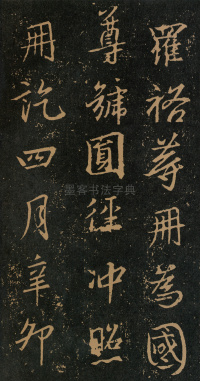 羅裕等冊為國
尊號圓徑冲照
冊訖四月辛卯
墨客书法字典